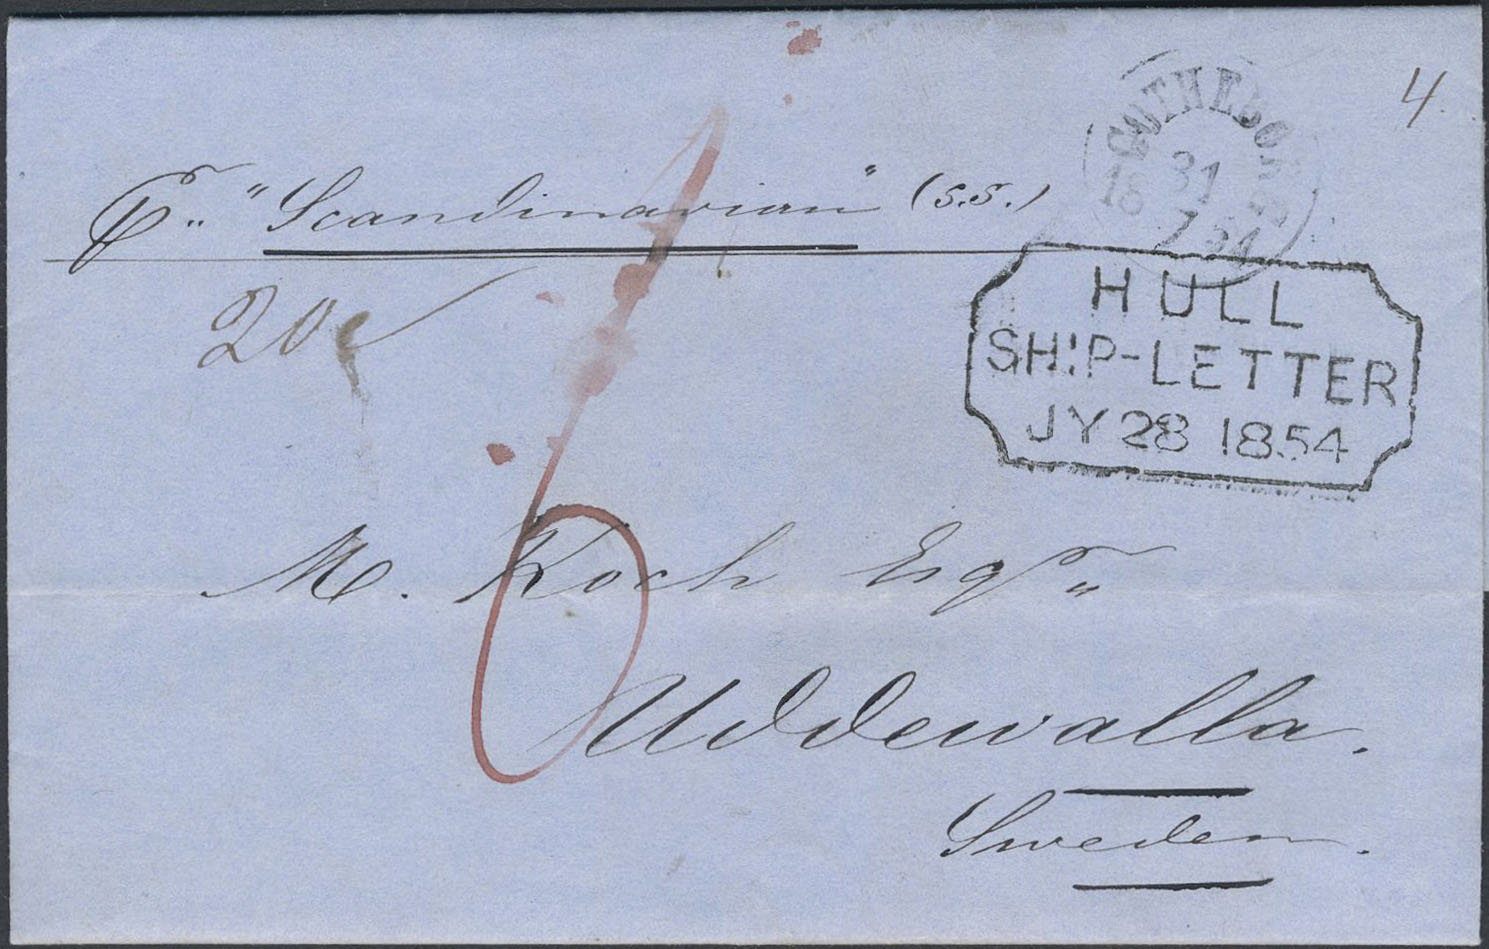 4
GÖTHEBORG
31
18 54
7
p. "Scandinavian" (S.S.)
HULL
SHIP-LETTER
JY 28 1854
20
6
M. Koch Esqr.
Uddewalla.
Sweden.